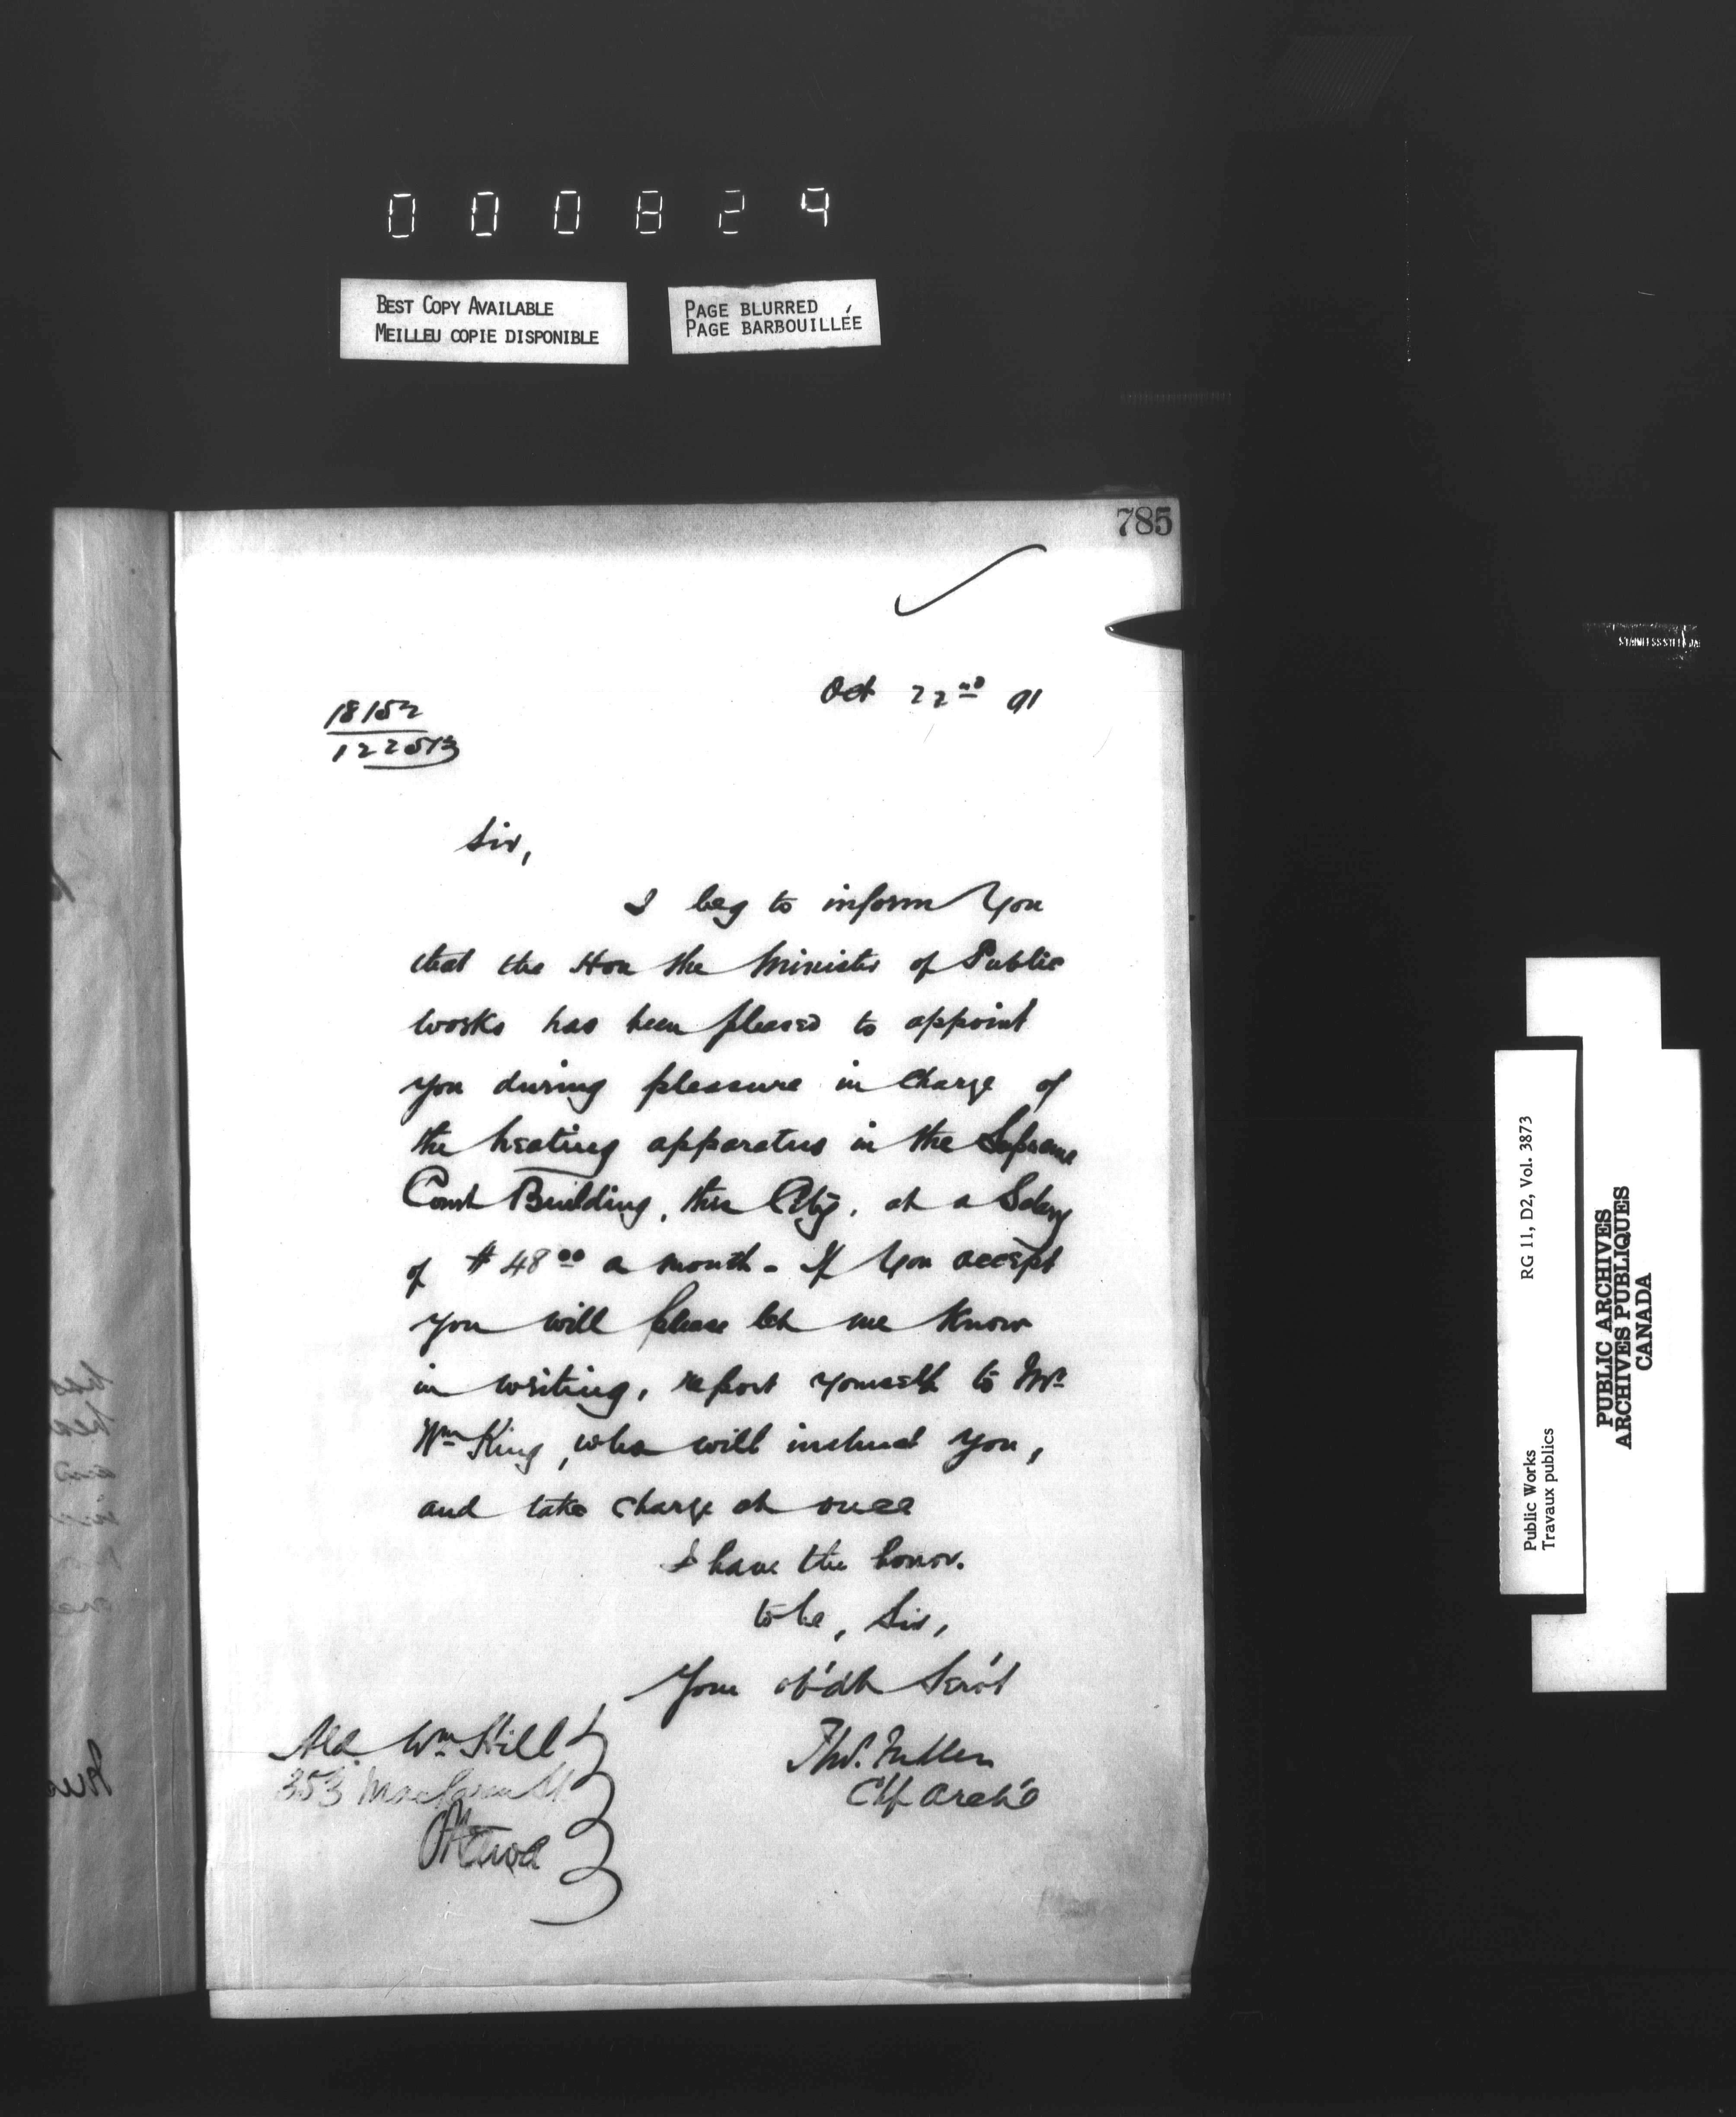 000829
BEST COPY AVAILABLE
MEILLEU COPIE DISPONIBLE
PAGE BLURRED
PAGE BARBOUILLÉE
785
Oct 22nd 91
18152
122513
Sir,
I beg to inform You
that the Hon the Minister of Public
Works has been pleased to appoint
you during pleasure in Charge of
the heating apparatus in the Supreme
Court Building, this City, at a Salary
of $48 00 a month - If You accept
you will please let me Know
in writing, report yourself to Mr
Wm King, who will instruct you,
and take charge at once
I have the honor.
to be, Sir,
Your ob'dt Serv't
Thos. Fuller
Chf Arch't
Wm Hill
353
Ottawa
Public Works
Travaux publics
RG 11, D2, Vol. 3873
PUBLIC ARCHIVES
ARCHIVES PUBLIQUES
CANADA